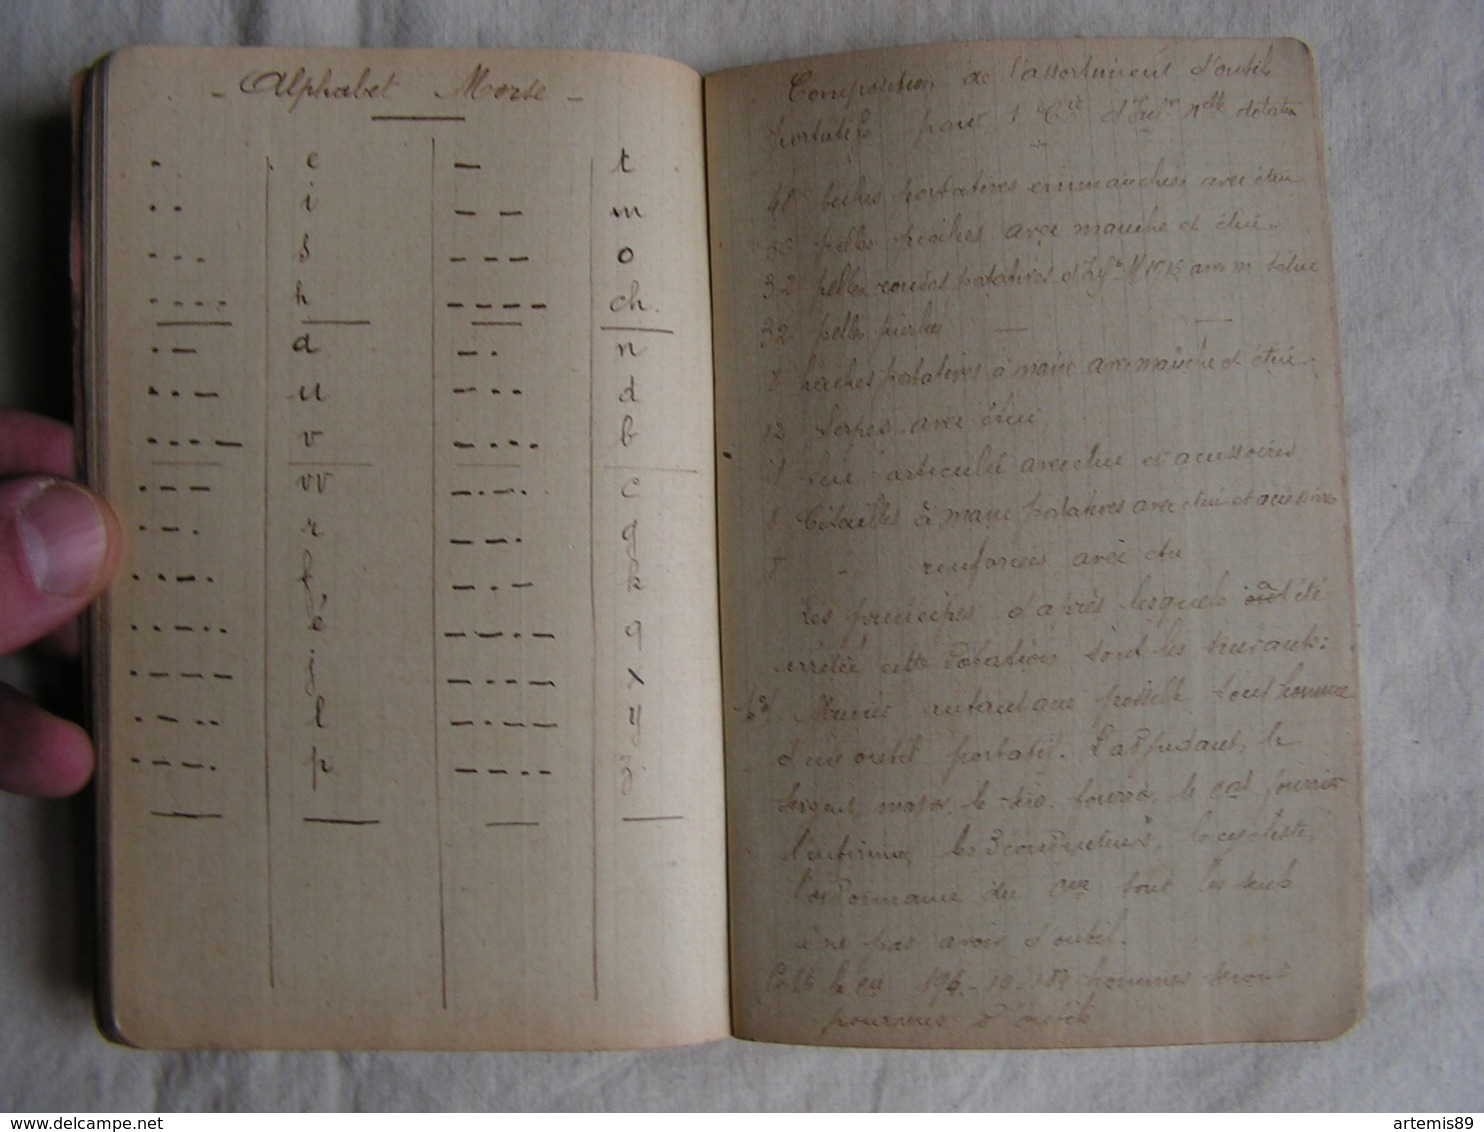 - Alphabet Morse -
. e - t
.. i -- m
... s --- o
.... h ---- ch.
.- a -. n
..- u -.. d
...- v -... b
.-- w -.-. c
.-. r --. g
..-. f -.- k
..-.. é --.- q
.--- j -..- x
.-.. l -.-- y
.--. p --.. z
Composition de l'assortiment d'outils
portatifs pour 1 Cie d'Infie nelle dotation
bêches portatives emmanchées avec étui
pelles pioches avec manche et étui
32 pelles rondes portatives d'Infie 1915 avec m et étui
32 pelles pioches — —
8 haches portatives à main avec manche et étui
12 serpes avec étui
1 scie articulée avec étui et accessoires
8 Cisailles à main portatives avec étui et accessoires
- renforcées avec étui
Les principes d'après lesquels ont été
arrêtée cette Dotation sont les suivants:
Munir autant que possible tout homme
d'un outil portatif. L'adjudant, le
sergent major, le fourrier, le cal fourrier
l'infirmier, les 3 conducteurs, le cycliste,
l'ordonnance du sont les seuls
à ne pas avoir d'outil.
hommes seront
pourvus d'outils
artemis89